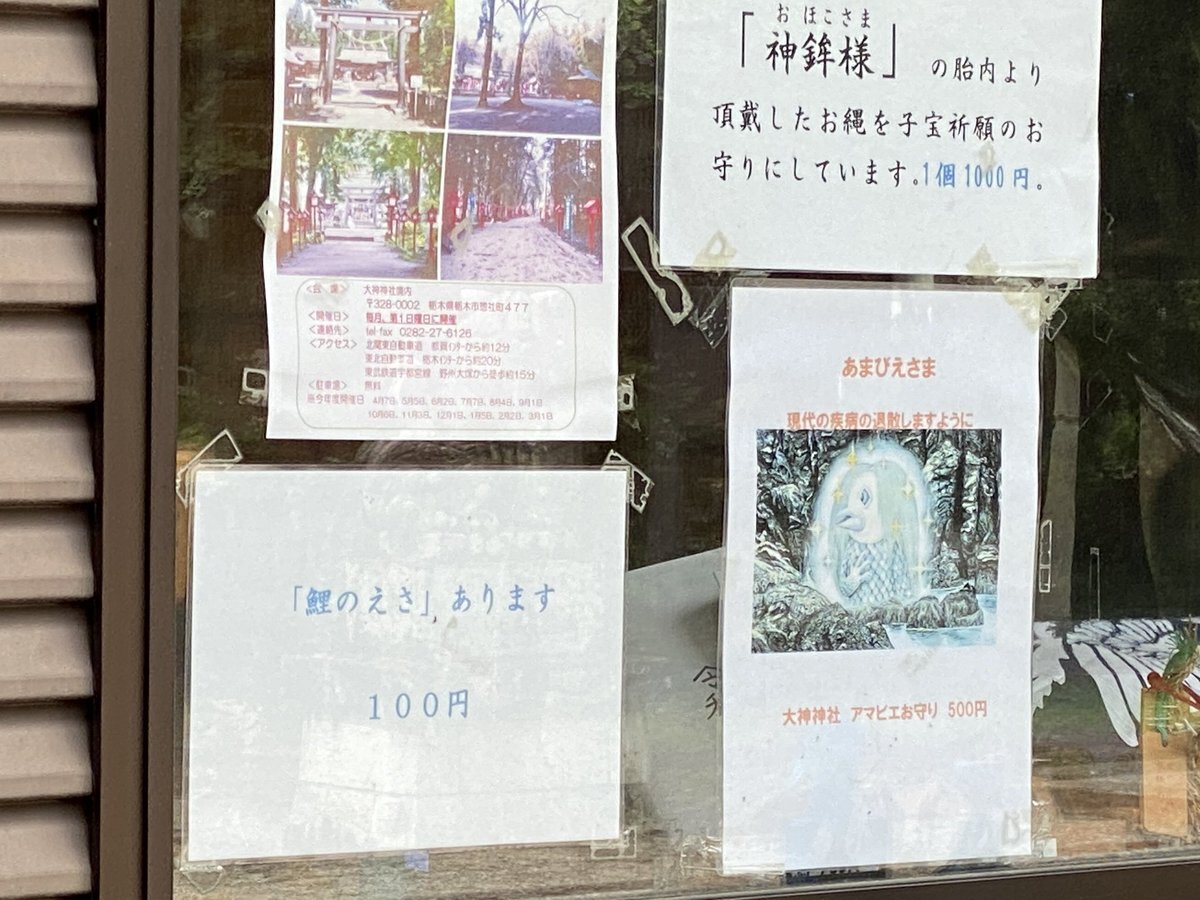 <会 場> 大神神社境内
〒328-0002 栃木県栃木市惣社町477
<開催日> 毎月、第1日曜日に開催
<連絡先> tel・fax 0282-27-6126
<アクセス> 北関東自動車道 都賀インターから約12分
東北自動車道 栃木インターから約20分
東武鉄道宇都宮線 野州大塚から徒歩約15分
<駐車場> 無料
※今年度開催日 4月7日、5月5日、6月2日、7月7日、8月4日、9月1日
10月6日、11月3日、12月1日、1月5日、2月2日、3月1日
おほこさま
「神鉾様」の胎内より
頂戴したお縄を子宝祈願のお
守りにしています。1個1000円。
「鯉のえさ」あります
100円
あまびえさま
現代の疾病の退散しますように
大神神社 アマビエお守り 500円